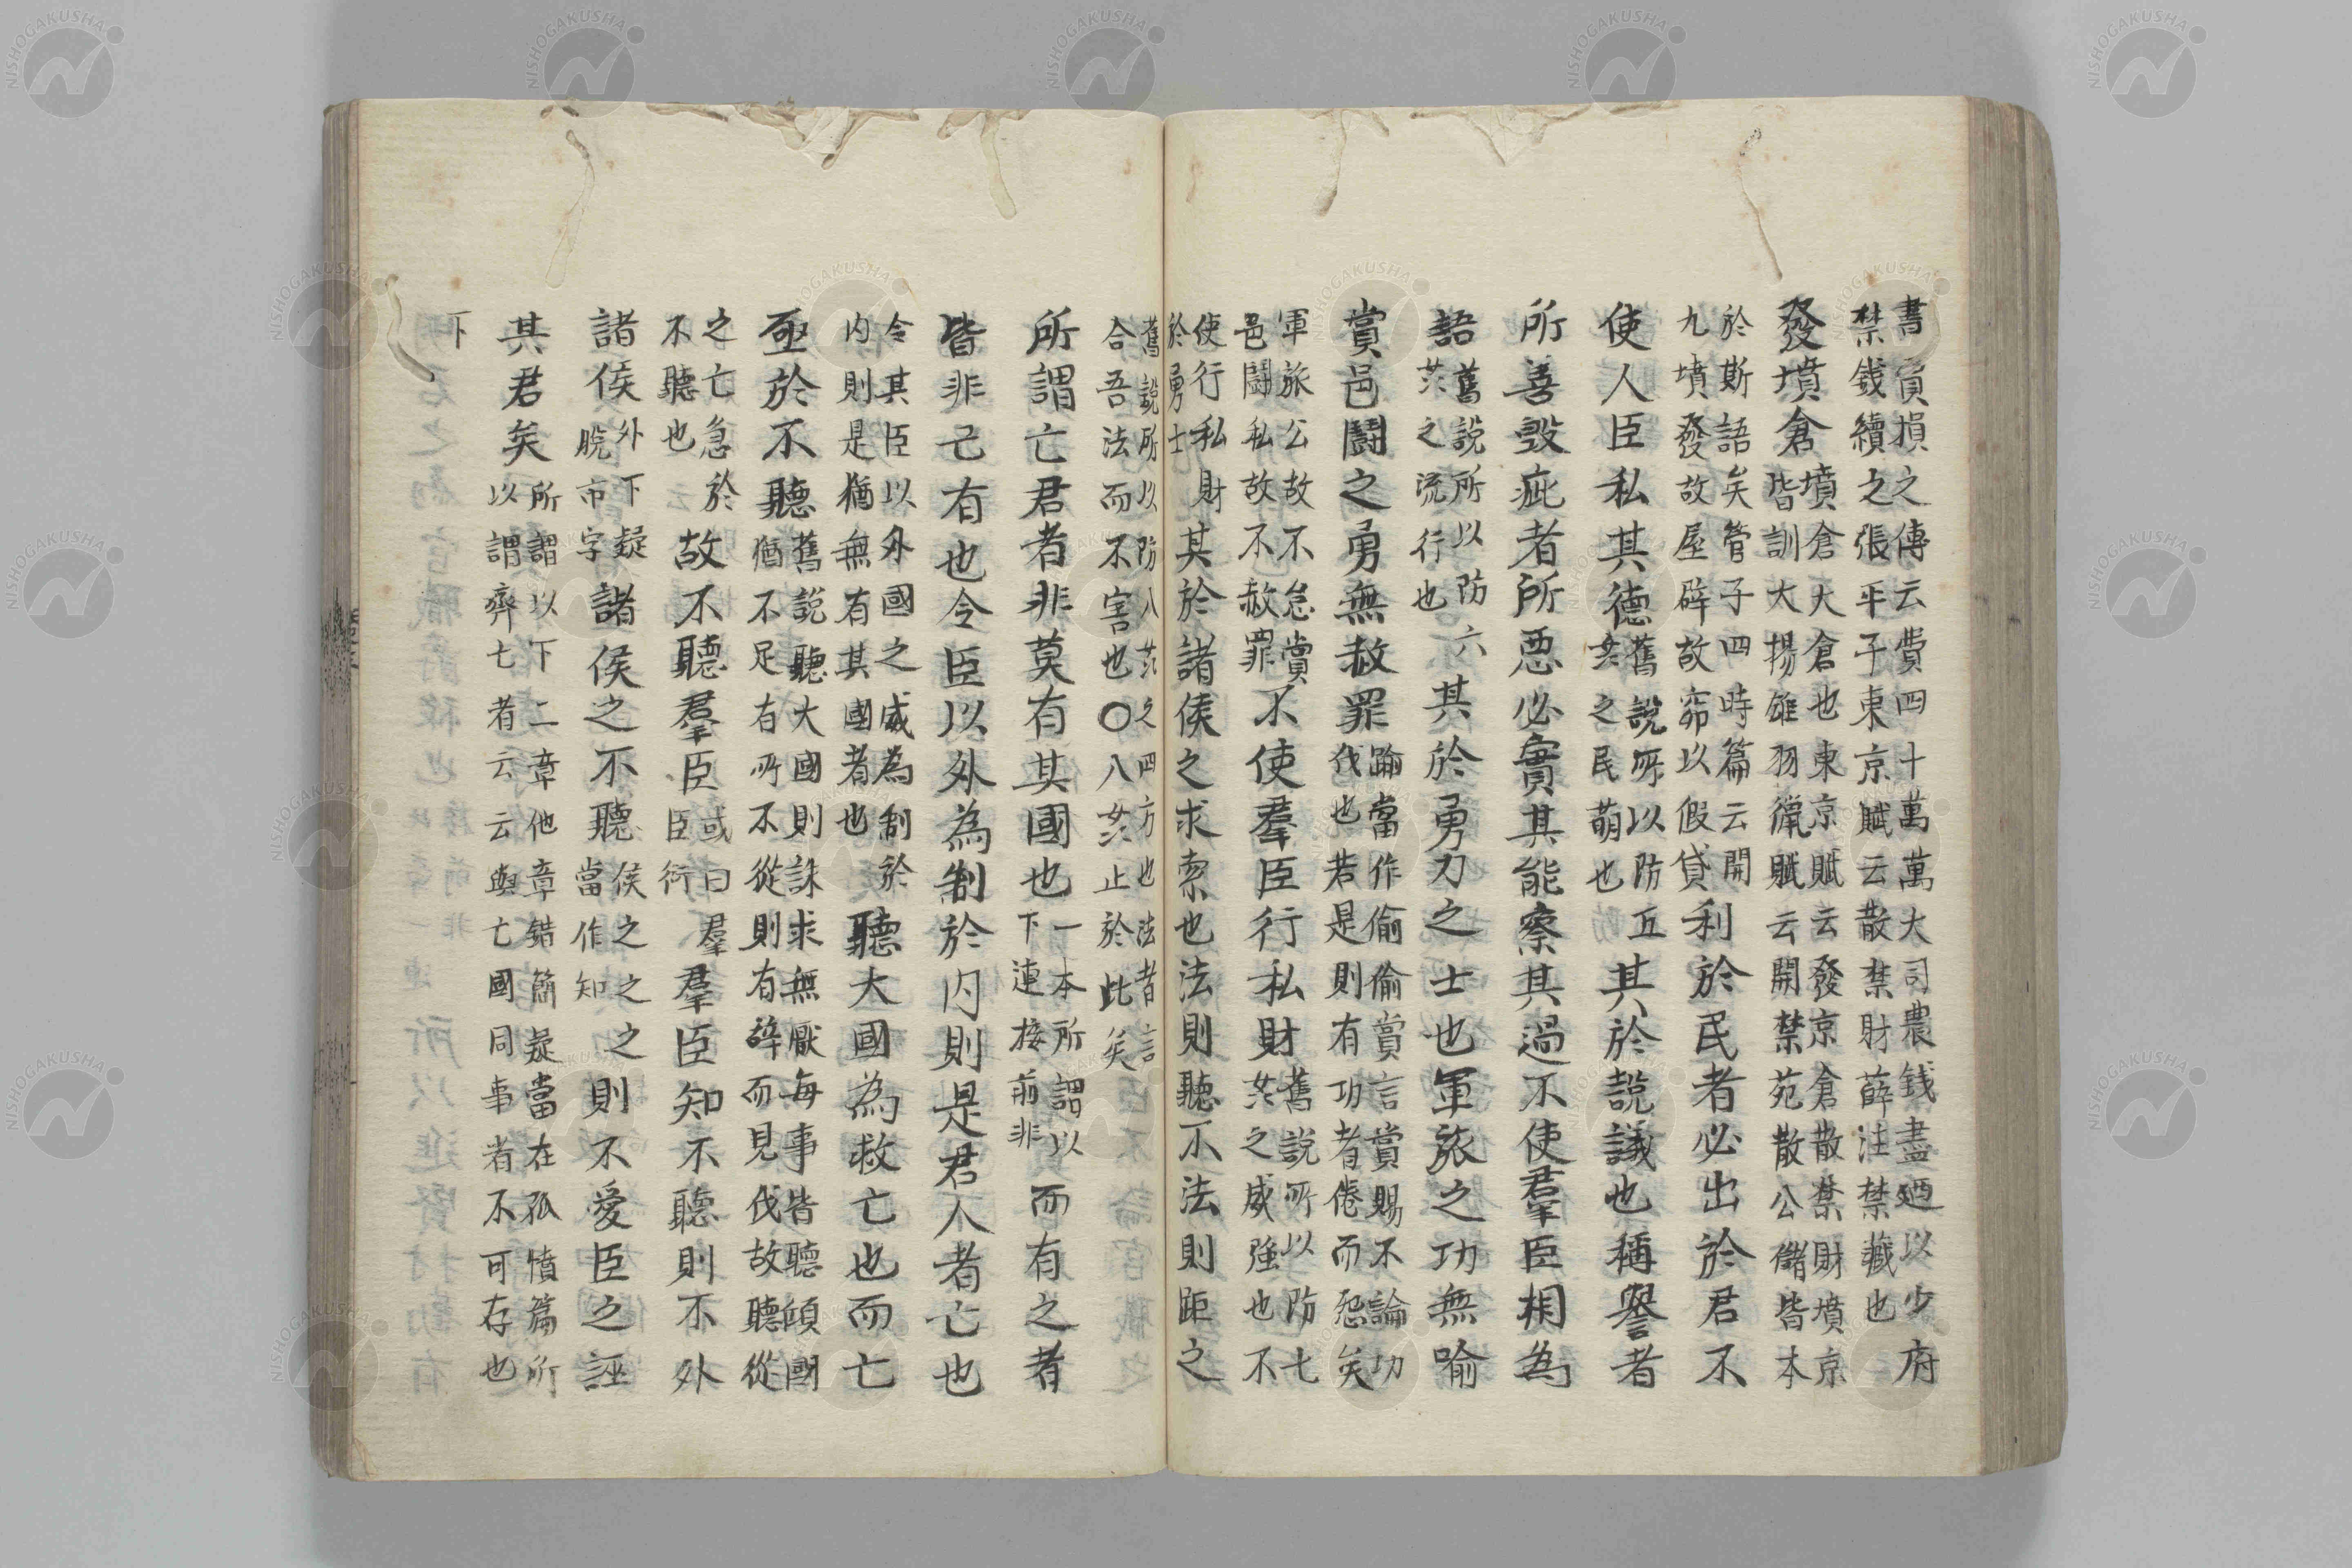 書負損之傳云費四十萬萬大司農錢盡廼以少府
禁錢續之張平子東京賦云散禁財薛注禁藏也
發墳倉
墳倉大倉也東京賦云發京倉散禁財墳京
皆訓大揚雄羽獵賦云開禁苑散公儲皆本
於斯語矣管子四時篇云開
九墳發故屋辟故窌以假貸
利於民者必出於君不
使人臣私其德
舊說所以防五
之民萌也
其於說議也稱譽者
所善毀疵者所惡必實其能察其過不使羣臣相為
語
舊說所以防六
之流行也
其於勇力之士也軍旅之功無喻
賞邑鬪之勇無赦罪
踰當作偷偷賞言賞賜不論功
伐也若是則有功者倦而怨矣
軍旅公故不怠賞
邑鬪私故不赦罪
不使羣臣行私財
舊說所以防七
之威強也不
使行私財
於勇士
其於諸侯之求索也法則聽不法則距之
舊說所以防八之四方也法者言
合吾法而不害也〇八止於此矣
所謂亡君者非莫有其國也
一本所謂以
下連接前非
而有之者
皆非己有也令臣以外為制於內則是君人者亡也
令其臣以外國之威為制於
內則是猶無有其國者也
聽大國為救亡也而亡
亟於不聽
舊說聽大國則誅求無厭每事皆聽傾國
猶不足有所不從則有辭而見伐故聽從
之亡急於
不聽也
故不聽羣臣
或曰羣
臣衍
羣臣知不聽則不外
諸侯
外下疑
脫市字
諸侯之不聽
侯之之之
當作知
則不愛臣之誣
其君矣
所謂以下二章他章錯簡疑當在孤憤篇所
以謂齊七者云云與亡國同事者不可存也
下
NISHOGAKUSHA